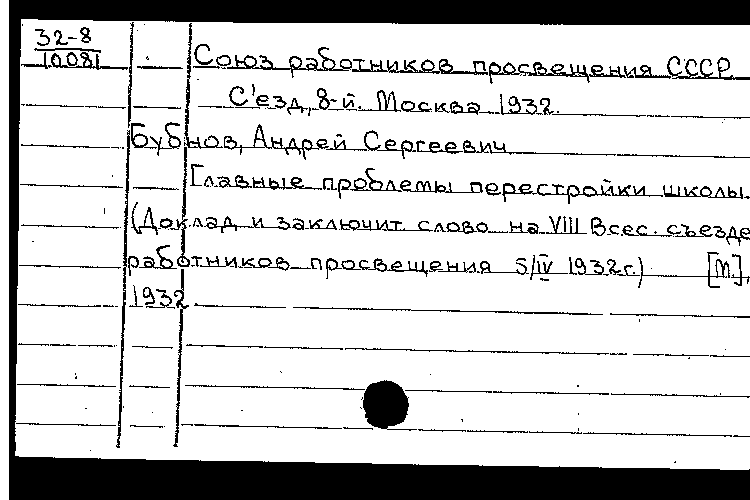 32-8
10081
Союз работников просвещения СССР
С'езд, 8-й. Москва 1932.
Бубнов, Андрей Сергеевич
Главные проблемы перестройки школы.
(Доклад и заключит. слово на VIII Всес. съезде
работников просвещения 5/IV 1932г.) [М.],
1932.